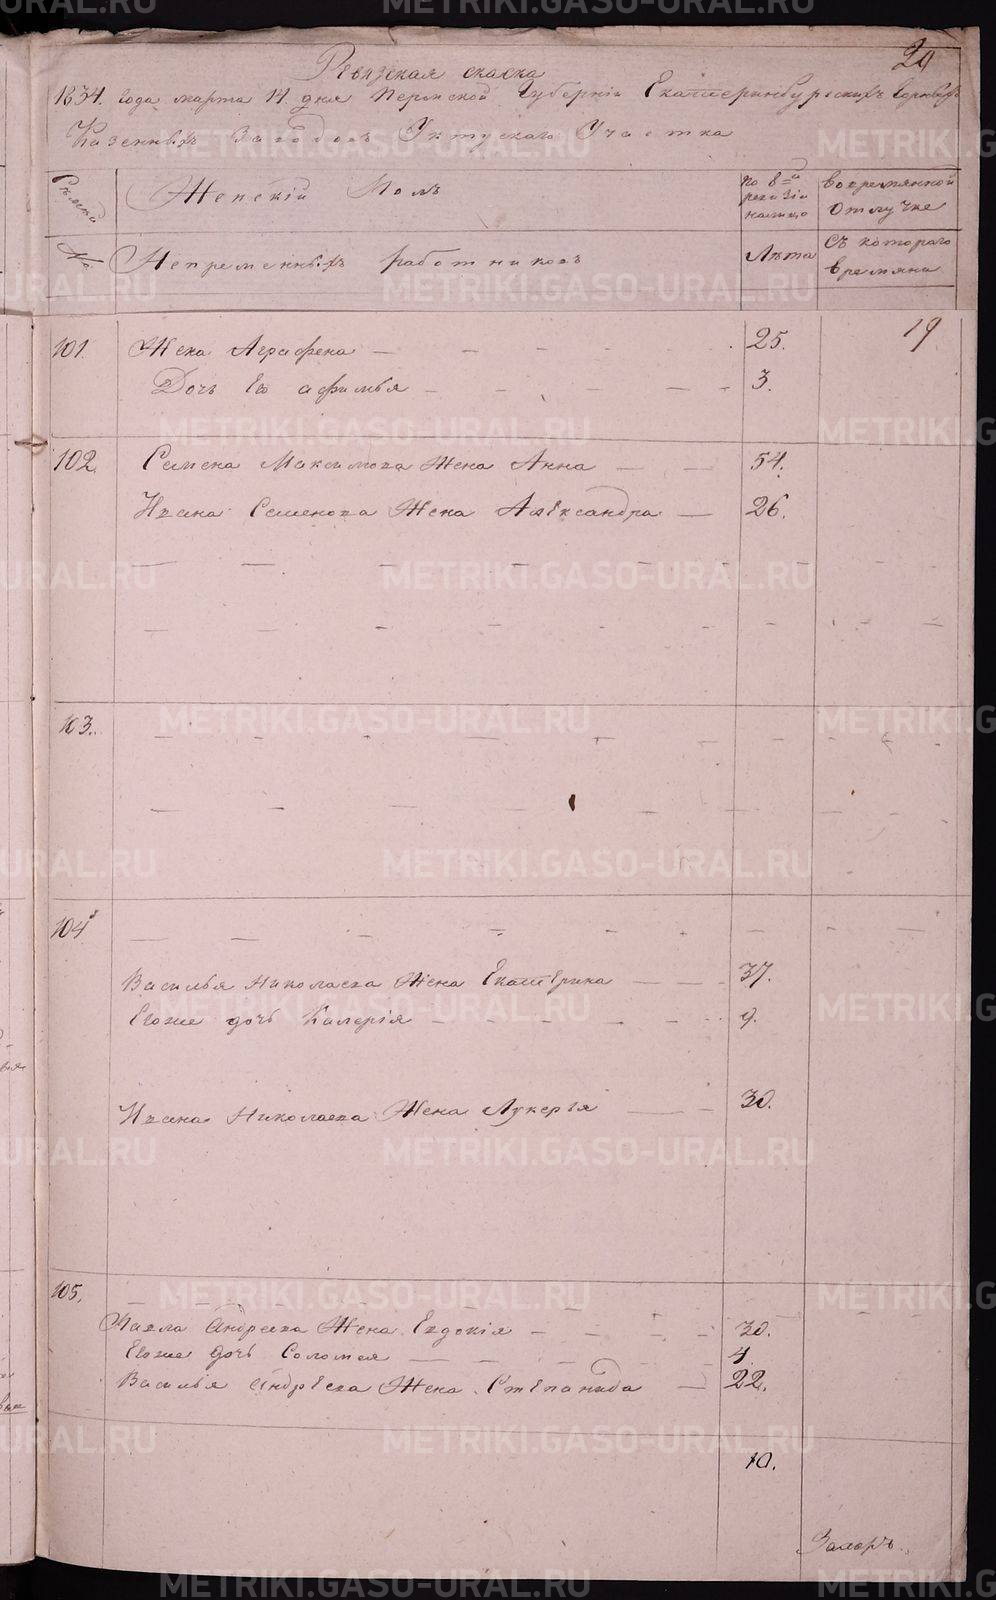 29
Ревизская скаска
1834. года марта 14 дня Пермской Губернiи Екатеринбургскихъ Горныхъ
Казенныхъ Заводовъ Уктускаго Участка
Женскiй Полъ
по 8=й ревизiи налицо
вовремянной отлучке
№
Непременныхъ работниковъ
Лѣта
съ котораго времяни
19
101. Жена Аграфена — 25.
Дочь Ево афимья — 3.
102. Семена Максимова Жена Анна — 54.
Ивана Семенова Жена Александра — 26.
103.
104
Василья Николаева Жена Екатерина — 37.
Евоже дочь Калерiя — 9.
Ивана Николаева Жена Лукерiя — 30.
105.
Павла Андреева Жена Евдокiя — 30.
Евоже дочь Соломея — 4
Василья Андреева Жена Степанида — 22.
10.
METRIKI.GASO-URAL.RU